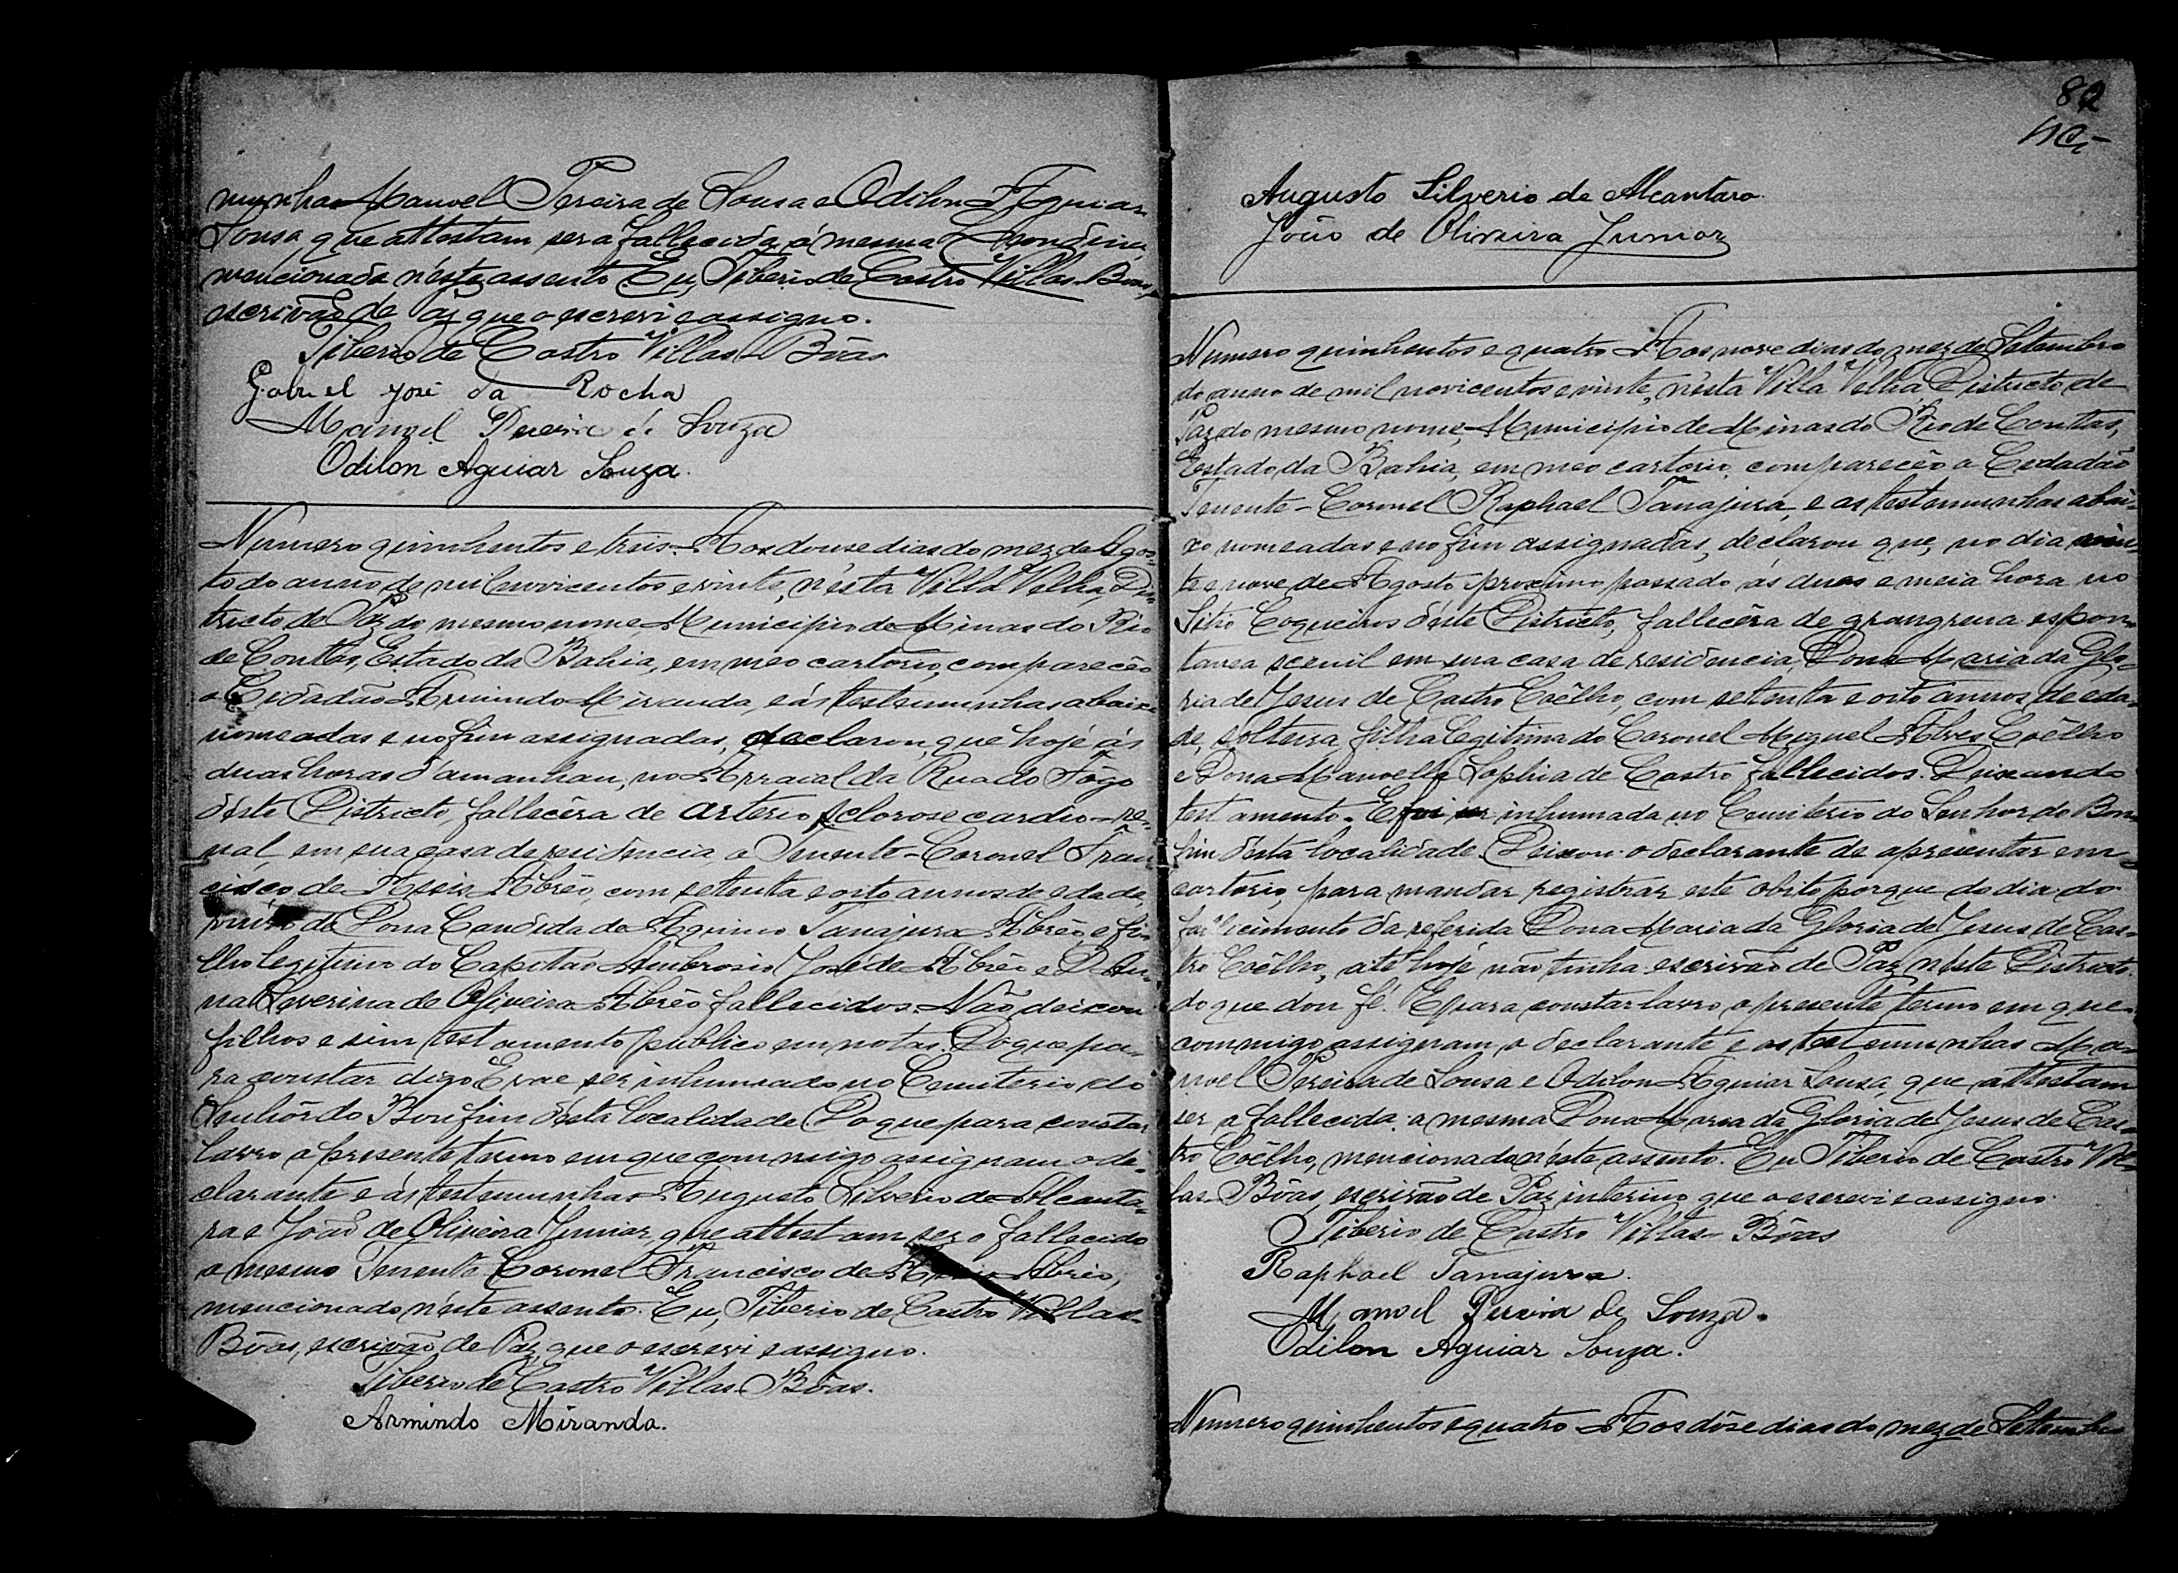 munhas Manoel Pereira de Sousa e Odilon Aguiar
Sousa, que attestam ser a fallecida a mesma Leondina,
mencionada n'este assento. Eu, Tiberio de Castro Villas-Bôas,
escrivão de Paz que o escrevi e assigno.
Tiberio de Castro Villas-Bôas
Gabriel José da Rocha
Manoel Pereira de Souza
Odilon Aguiar Souza.
Numero quinhentos e treis. Aos douse dias do mez de Agos-
to do anno de mil novicentos e vinte, n'ésta Villa Velha, Dis-
tricto de Paz do mesmo nome, Municipio de Minas do Rio
de Contas, Estado da Bahia, em meo cartorio, comparecêo
o Cidadão Armindo Miranda, e ás testemunhas abaixo
nomeadas e no fim assignadas, declarou, que hoje ás
duas horas d'amanhan, no Arraial da Rua do Fôgo
d'éste Districto, fallecêra de arterio sclorose cardio-re-
nal em sua casa de residencia o Tenente-Coronel Fran-
cisco de Assis Abrêo, com setenta e oito annos de edade,
viúvo de Dona Candida de Aquino Tanajura Abrêo, e fi-
lho legitimo do Capitão Ambrosio José de Abrêo e D. An-
na Severina de Oliveira Abrêo, fallecidos. Não deixou
filhos e sim testamento publico em notas. Do que pa-
ra constar digo E vae ser inhumado no Cemiterio do
Senhôr do Bomfim d'ésta Localidade. Do que para constar
lavro o presente termo em que commigo assignam o de-
clarante e ás testemunhas Augusto Silverio de Alcanta-
ra e João de Oliveira Junior, que attestam ser o fallecido
o mesmo Tenente Coronel Francisco de Assis Abrêo,
mencionado n'éste assento. Eu, Tiberio de Castro Villas-
Bôas, escrivão de Paz, que o escrevi e assigno.
Tiberio de Castro Villas-Bôas.
Armindo Miranda.
82
Augusto Silverio de Alcantara.
João de Oliveira Junior
Numero quinhentos e quatro. Aos nove dias do mez de Setembro
do anno de mil novicentos e vinte, n'ésta Villa Velha, Districto de
Paz do mesmo nome, Municipio de Minas do Rio de Contas,
Estado da Bahia, em meo cartorio, comparecêo o Cidadão
Tenente-Coronel Raphael Tanajura, e as testemunhas abai-
xo nomeadas e no fim assignadas, declarou que, no dia vin-
te e nove de Agosto proximo passado ás duas e meia hora no
Sitio Coqueiros d'éste Districto, fallecêra de grangrena espon-
tanea scenil em sua casa de residencia, Dona Maria da Glo-
ria de Jesus de Castro Coêlho, com setenta e oito annos de eda-
de, solteira, filha legitima do Coronel Miguel Alves Coêlho
e Dona Manoella Sophia de Castro fallecidos. Deixando
testamento. E foi inhumada no Cemiterio do Senhor do Bom-
fim d'ésta localidade. Deixou o declarante de apresentar em
cartorio, para mandar registrar este obito porque do dia do
fallecimento da referida Dona Maria da Gloria de Jesus de Cas-
tro Coêlho, até hoje não tinha escrivão de Paz n'éste Districto.
do que dou fé. E para constar lavro o presente termo em que
commigo assignam o declarante e as testemunhas Ma-
noel Pereira de Sousa e Odilon Aguiar Sousa, que attestam
ser a fallecida a mesma Dona Maria da Gloria de Jesus de Cas-
tro Coêlho, mencionada n'éste assento. Eu Tiberio de Castro Vil-
las-Bôas, escrivão de Paz interino que o escrevi e assigno.
Tiberio de Castro Villas-Bôas
Raphael Tanajura.
Manoel Pereira de Souza.
Odilon Aguiar Souza.
Numero quinhentos e quatro. Aos dôse dias do mez de Setembro